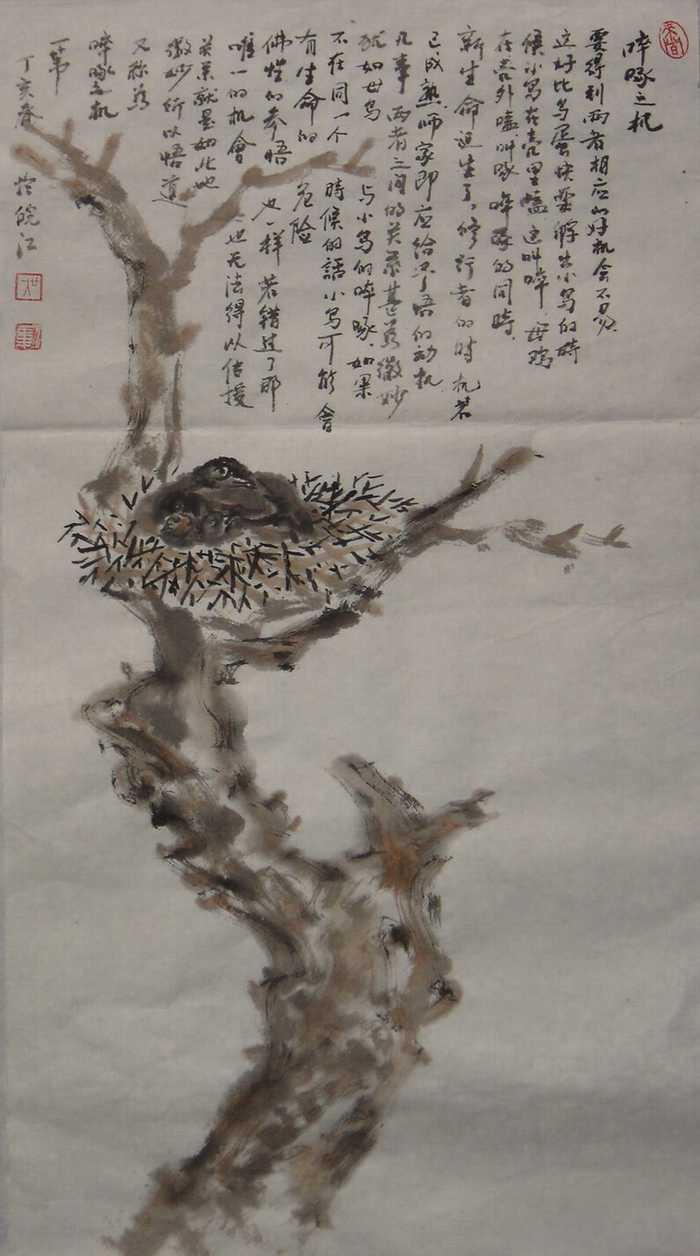 啐啄之机
要得到两者相应的好机会不易、
这好比鸟蛋快要孵出小鸟的時
候小鸟在壳里嗑这叫啐、母鸡
在壳外嗑叫啄啐啄的同時、
新生命诞生了、修行者的时机若
已成熟师家即应给予了悟的动机
凡事两者之间的关系甚为微妙
就如母鸟与小鸟的啐啄、如果
不在同一个時候的話小鸟可能會
有生命的危险
佛性的参悟也一样若錯过了那
唯一的机會也无法得以传授
关系就是如此地
微妙所以悟道
又称为
啐啄之机
一苇
丁亥春
於皖江